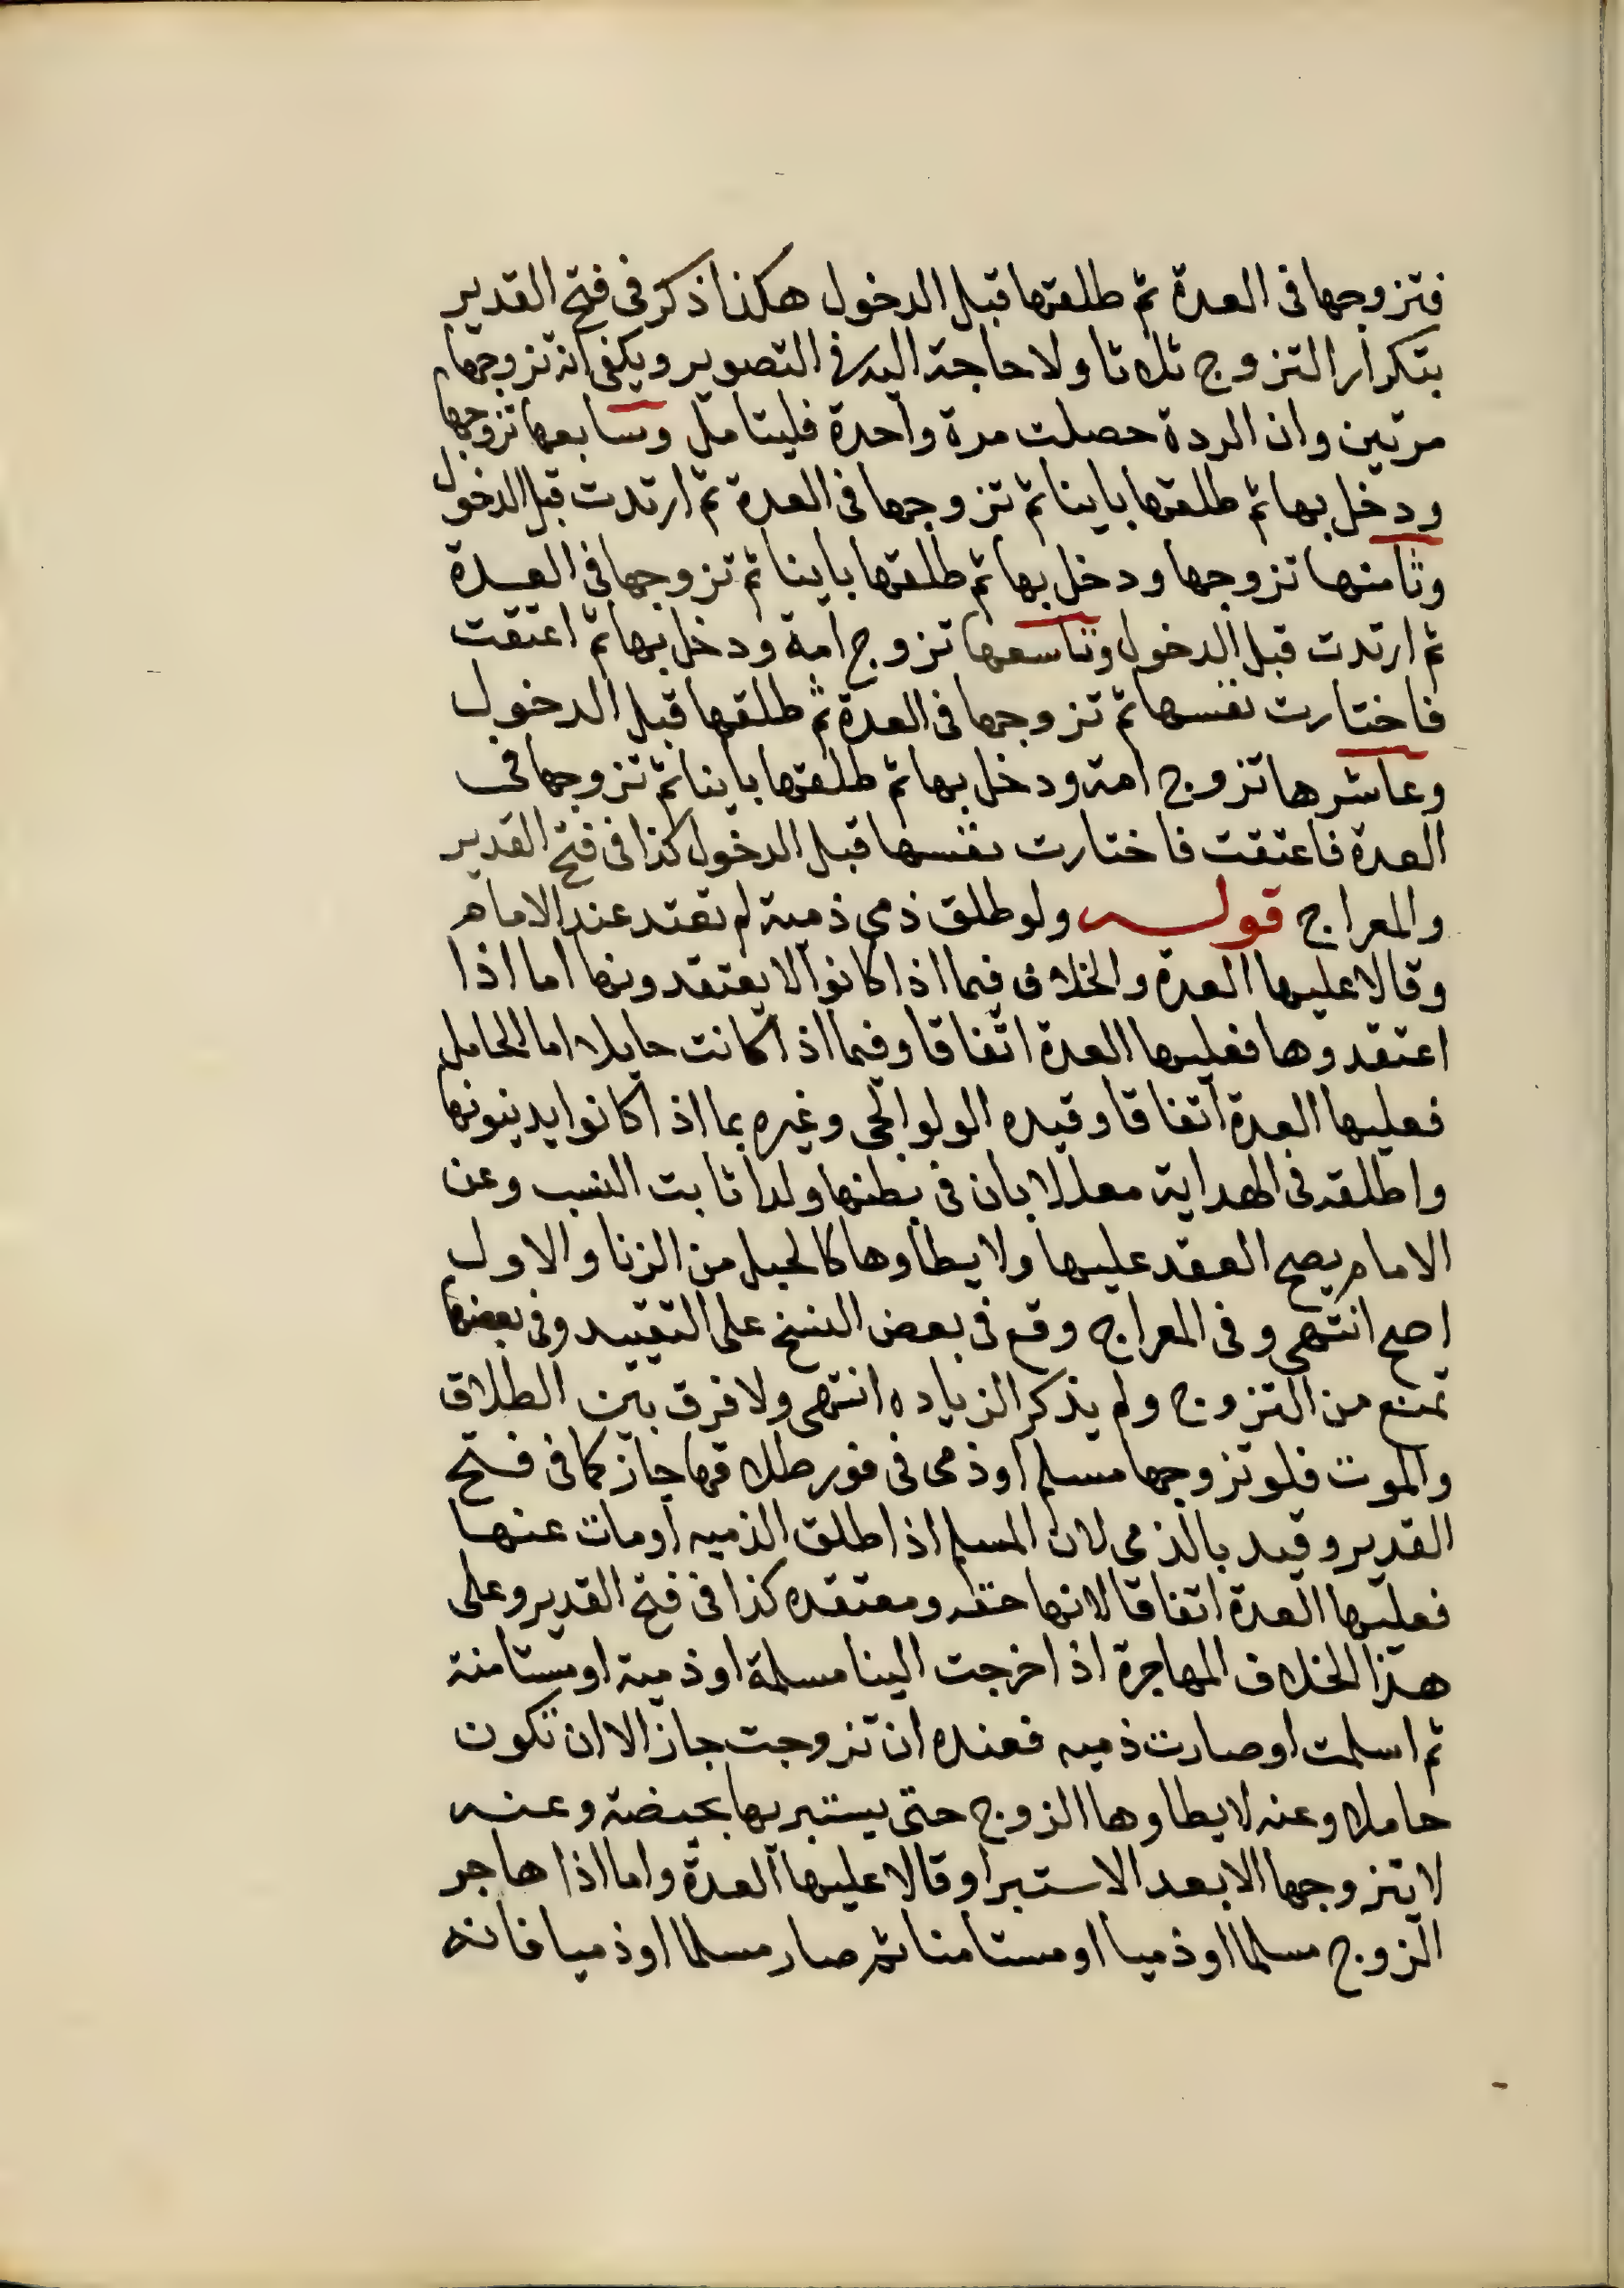 فتزوجها فى العدة ثم طلقها قبل الدخول هكذا ذكر فى فتح القدير
بتكرار التزوج ثلاثا ولا حاجة اليه فى التصوير ويكفى انه تزوجها
مرتين وان الردة حصلت مرة واحدة فليتامل وسابعها تزوجها
ودخل بها ثم طلقها باينا ثم تزوجها فى العدة ثم ارتدت قبل الدخول
وثامنها تزوجها ودخل بها ثم طلقها باينا ثم تزوجها فى العدة
ثم ارتدت قبل الدخول وتاسعها تزوج امة ودخل بها ثم اعتقت
فاختارت نفسها ثم تزوجها فى العدة ثم طلقها قبل الدخول
وعاشرها تزوج امة ودخل بها ثم طلقها باينا ثم تزوجها فى
العدة فاعتقت فاختارت نفسها قبل الدخول كذا فى فتح القدير
والمعراج قوله ولو طلق ذمي ذمية لم تعتد عند الامام
وقالا عليها العدة والخلاف فيما اذا كانوا لا يعتقدونها اما اذا
اعتقدوها فعليها العدة اتفاقا وفيما اذا كانت حايلا اما الحامل
فعليها العدة اتفاقا وقيده الولوالجى وغيره بما اذا كانوا يدينونها
واطلقه فى الهداية معللا بان فى بطنها ولدا ثابت النسب وعن
الامام يصح العقد عليها ولا يطاوها كالحبل من الزنا والاول
اصح انتهى وفى المعراج وقع فى بعض النسخ على التقييد وفى بعضها
تمنع من التزوج ولم يذكر الزياده انتهى ولا فرق بين الطلاق
والموت فلو تزوجها مسلم اوذمى فى فور طلاقها جاز كما فى فتح
القدير وقيد بالذمى لان المسلم اذا طلق الذميه او مات عنها
فعليها العدة اتفاقا لانها حقه ومعتقده كذا فى فتح القدير وعلى
هذا الخلاف المهاجرة اذا خرجت الينا مسلمة او ذمية او مستامنة
ثم اسلمت او صارت ذميه فعنده ان تزوجت جاز الا ان تكون
حاملا وعنه لا يطاوها الزوج حتى يستبريها بحيضة وعنه
لا يتزوجها الا بعد الاستبرا وقالا عليها العدة واما اذا هاجر
الزوج مسلما او ذميا او مستامنا ثم صار مسلما او ذميا فانه